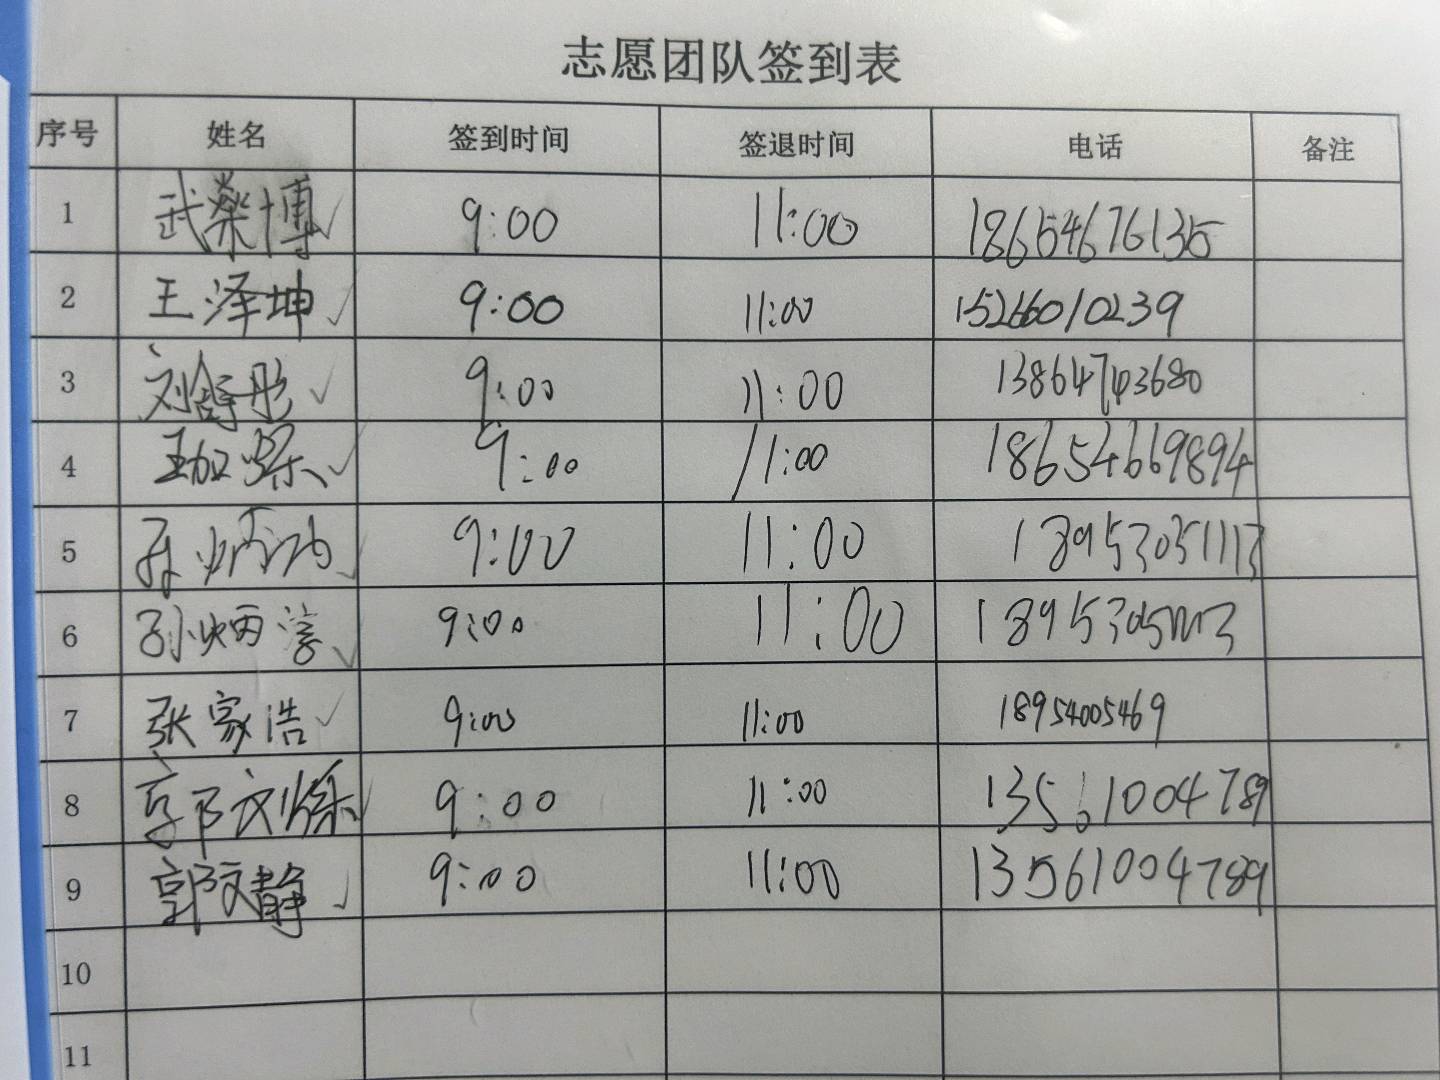 志愿团队签到表
序号 姓名 签到时间 签退时间 电话 备注
1 武燊博 9:00 11:00 18654676135
2 王泽坤 9:00 11:00 15266010239
3 刘舒彤 9:00 11:00 13864743680
4 9:00 11:00 18654669894
5 孙炳 9:00 11:00 18953051113
6 孙炳 9:00 11:00 18953051113
7 张家浩 9:00 11:00 18954005469
8 郭文 9:00 11:00 13561004789
9 郭文静 9:00 11:00 13561004789
10
11